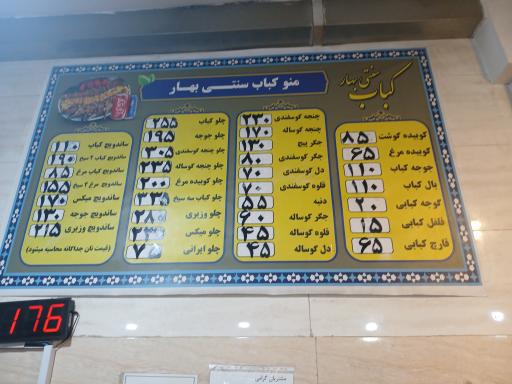 منو کباب سنتی بهار
کباب سنتی بهار
کوبیده گوشت ۸۵
کوبیده مرغ ۶۵
جوجه کباب ۱۱۰
بال کباب ۱۱۰
گوجه کبابی ۲۰
فلفل کبابی ۱۵
قارچ کبابی ۶۵
چنجه گوسفندی ۲۳۰
چنجه گوساله ۱۷۰
جگر پیچ ۱۳۰
جگر گوسفندی ۸۰
دل گوسفندی ۷۰
قلوه گوسفندی ۷۰
دنبه ۵۵
جگر گوساله ۶۰
قلوه گوساله ۴۵
دل گوساله ۴۵
چلو کباب ۲۵۵
چلو جوجه ۱۹۵
چلو چنجه گوسفندی ۳۰۵
چلو چنجه گوساله ۲۳۵
چلو کوبیده مرغ ۲۰۰
چلو کباب سه سیخ ۳۳۵
چلو وزیری ۲۸۰
چلو میکس
چلو ایرانی ۷۵
ساندویچ کباب ۱۱۰
ساندویچ کباب ۲ سیخ ۱۹۰
ساندویچ کباب مرغ ۸۵
ساندویچ مرغ ۲ سیخ ۱۵۵
ساندویچ میکس ۱۷۰
ساندویچ جوجه ۱۳۰
ساندویچ وزیری ۲۱۵
(قیمت نان جداگانه محاسبه میشود)
176
مشتریان گرامی